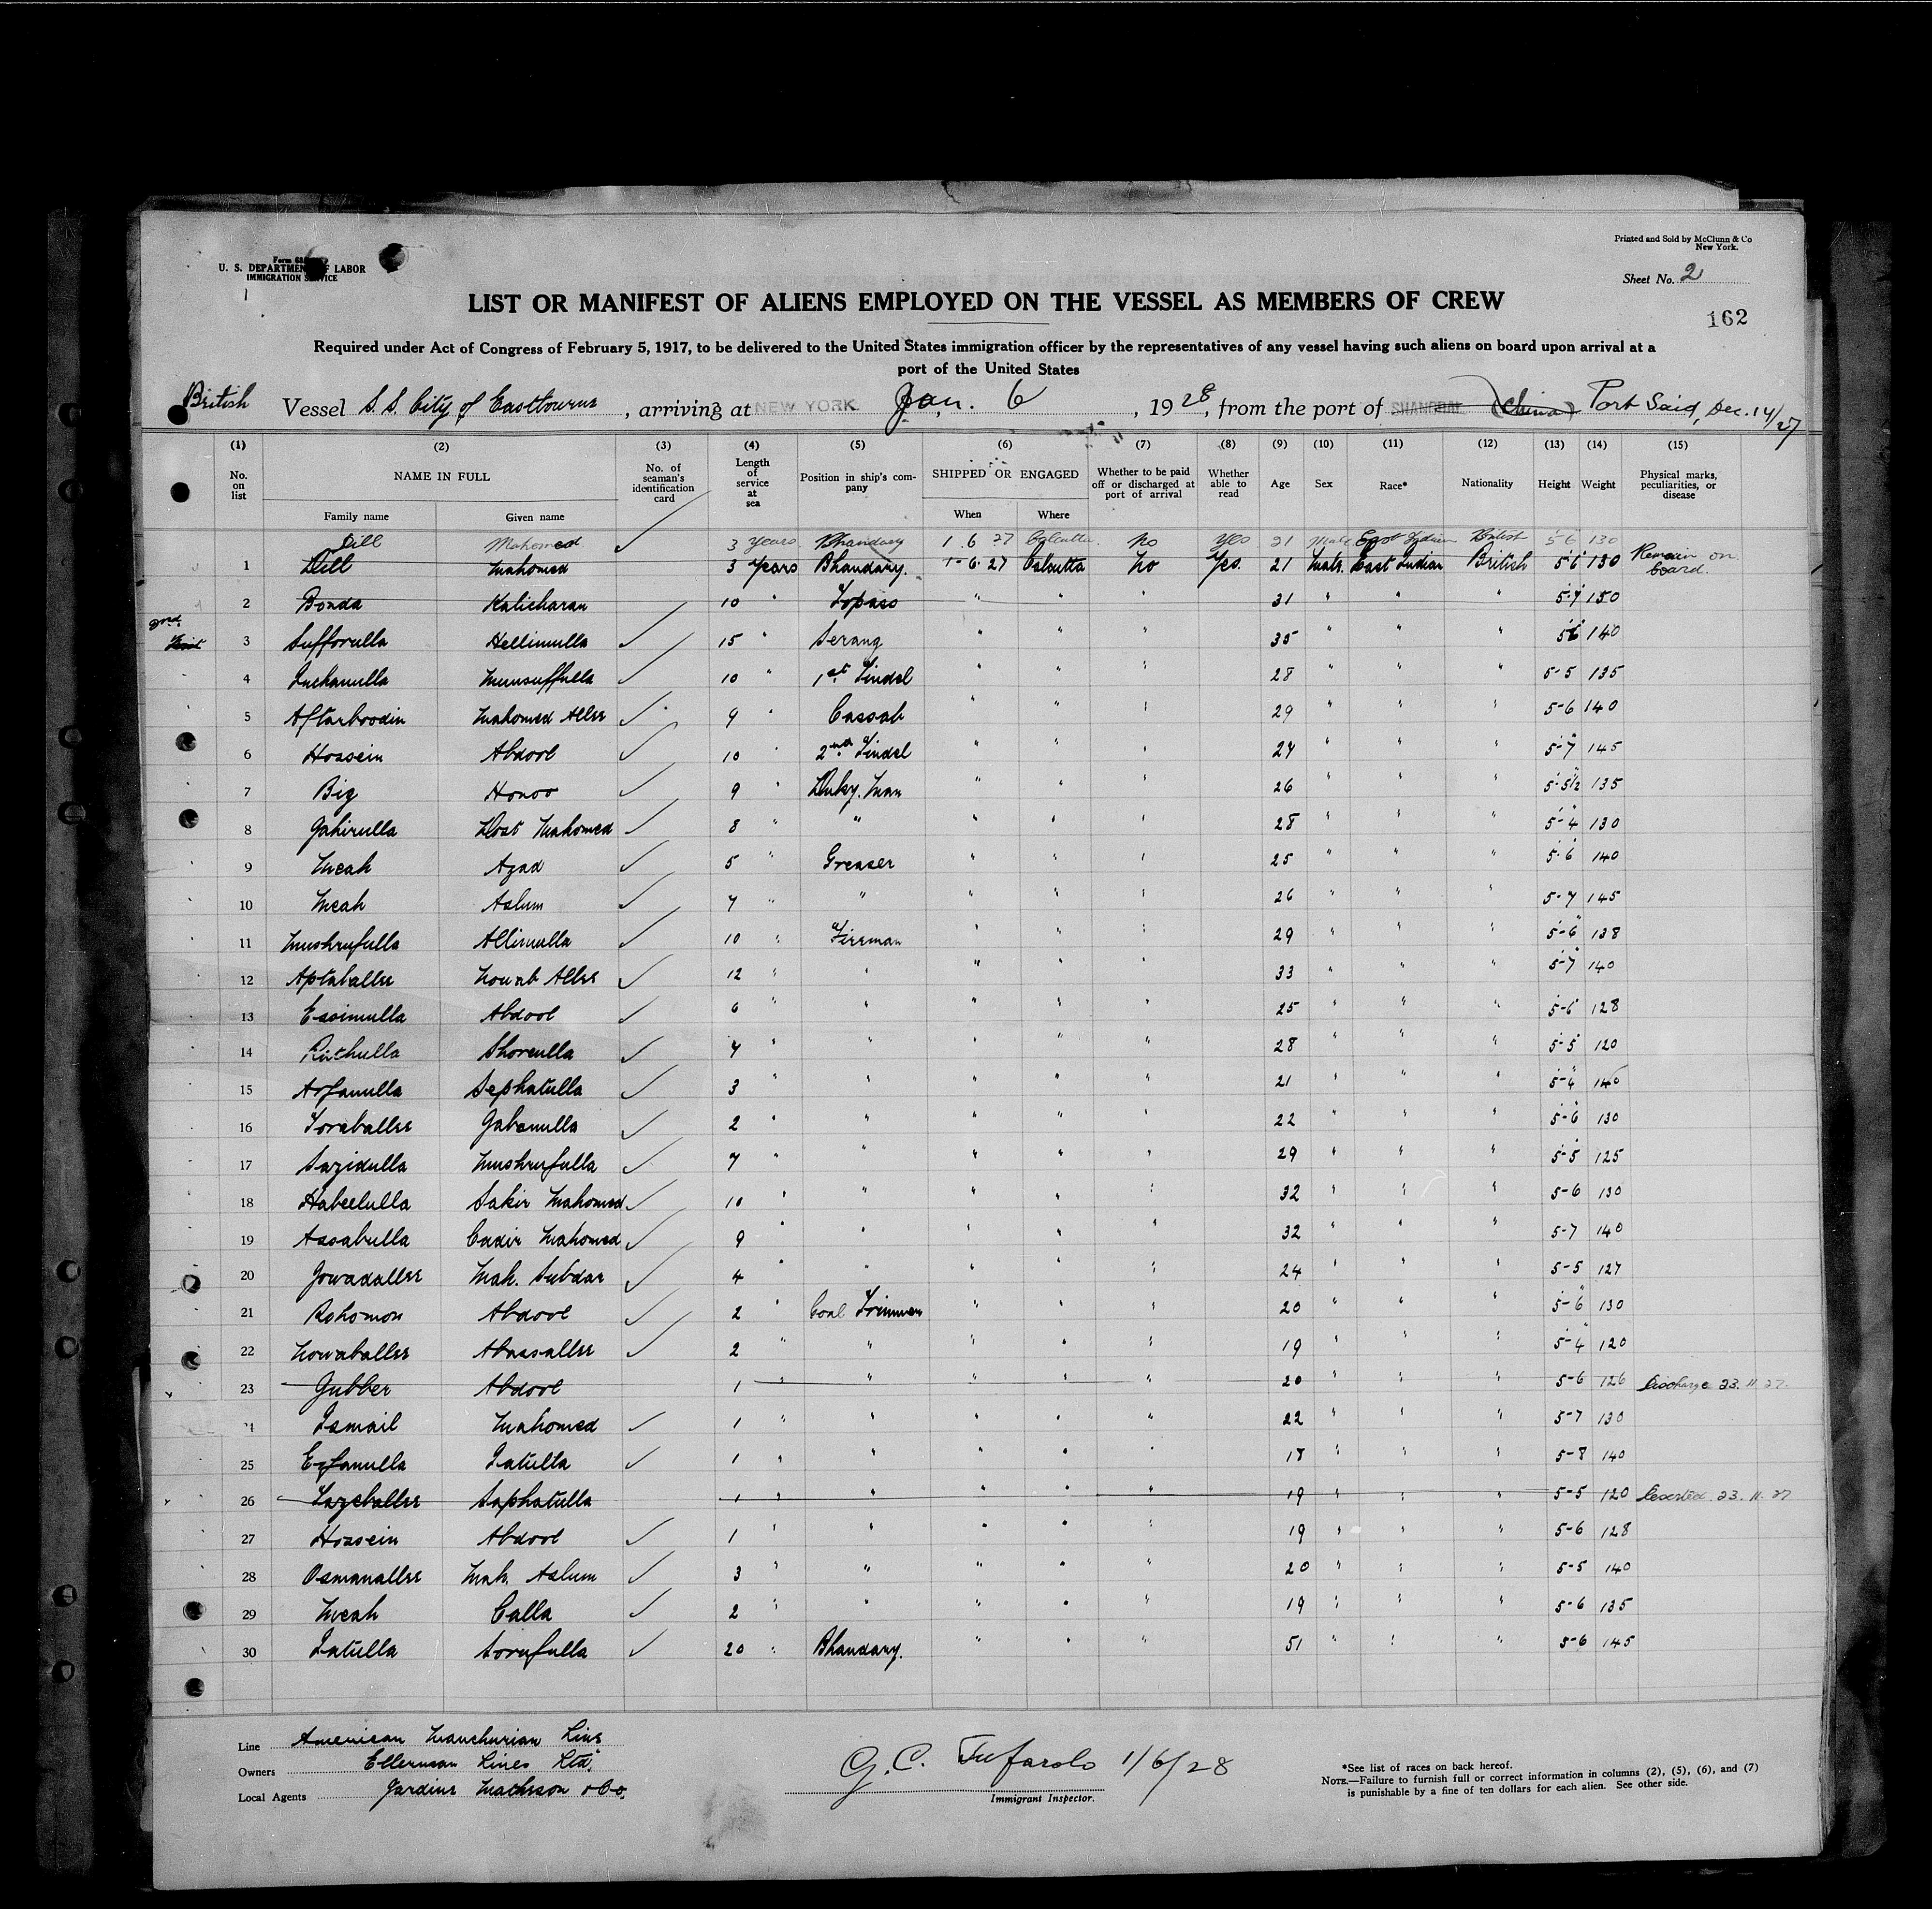 Form 68
U. S. DEPARTMENT OF LABOR
IMMIGRATION SERVICE
1
Printed and Sold by McClunn & Co
New York.
Sheet No. 2
162
LIST OR MANIFEST OF ALIENS EMPLOYED ON THE VESSEL AS MEMBERS OF CREW
Required under Act of Congress of February 5, 1917, to be delivered to the United States immigration officer by the representatives of any vessel having such aliens on board upon arrival at a
port of the United States
British Vessel S.S. City of Eastbourne, arriving at NEW YORK Jan. 6, 1928, from the port of SHANGHAI (China) Port Said, Dec. 14/27
(1) (2) (3) (4) (5) (6) (7) (8) (9) (10) (11) (12) (13) (14) (15)
No. on list NAME IN FULL No. of seaman's identification card Length of service at sea Position in ship's company SHIPPED OR ENGAGED Whether to be paid off or discharged at port of arrival Whether able to read Age Sex Race* Nationality Height Weight Physical marks, peculiarities, or disease
Family name Given name When Where
Dill Mahomed ✓ 3 years Bhandary 1 6 27 Calcutta No Yes 21 Male East Indian British 5 6 130
1 Dill Mahomed 3 Years Bhandary. 1-6-27 Calcutta No Yes. 21 Male. East Indian British 5 6 130 Remain on board.
2 Bonda Kalicharan 10 " Topass " " " 31 " " " 5-7 150
3 Sufforulla Hellimulla ✓ 15 " Serang " " " 35 " " " 5 6 140
4 Luckanulla Munsuffulla ✓ 10 " 1st Tindel " " " 28 " " " 5-5 135
5 Aftarboodin Mahomed Allee ✓ 9 " Cassab " " " 29 " " " 5-6 140
6 Hossein Abdool ✓ 10 " 2nd Tindel " " " 27 " " " 5-7 145
7 Big Honoo ✓ 9 " Dnky. Man " " " 26 " " " 5-5½ 135
8 Gahirulla Dost Mahomed ✓ 8 " " " " " 28 " " " 5-4 130
9 Meah Azad ✓ 5 " Greaser " " " 25 " " " 5-6 140
10 Meah Aslum ✓ 7 " " " " " 26 " " " 5-7 145
11 Mushrufulla Allimulla ✓ 10 " Fireman " " " 29 " " " 5-6 138
12 Aptaballee Nowab Allee ✓ 12 " " " " " 33 " " " 5-7 140
13 Essimulla Abdool ✓ 6 " " " " " 25 " " " 5-6 128
14 Rithulla Shoreulla ✓ 7 " " " " " 28 " " " 5-5 120
15 Arfanulla Sephatulla ✓ 3 " " " " " 21 " " " 5-4 140
16 Toraballee Gabanulla ✓ 2 " " " " " 22 " " " 5-6 130
17 Sazidulla Mushrufulla ✓ 7 " " " " " 29 " " " 5-5 125
18 Habeelulla Sakir Mahomed ✓ 10 " " " " " 32 " " " 5-6 130
19 Assabulla Cadir Mahomed ✓ 9 " " " " " 32 " " " 5-7 140
20 Jowadallee Mah. Subdar ✓ 4 " " " " " 24 " " " 5-5 127
21 Rohomon Abdool ✓ 2 " Coal Trimmer " " " 20 " " " 5-6 130
22 Nowaballee Abassallee ✓ 2 " " " " " 19 " " " 5-4 120
23 Gubber Abdool 1 " " " " " 20 " " " 5-6 126 Discharge 23.11.27.
24 Ismail Mahomed ✓ 1 " " " " " 22 " " " 5-7 130
25 Ezfanulla Latulla ✓ 1 " " " " " 18 " " " 5-8 140
26 Tazeballee Saphatulla 1 " " " " " 19 " " " 5-5 120 Deserted 23.11.27
27 Hossein Abdool ✓ 1 " " " " " 19 " " " 5-6 128
28 Osmanallee Mah. Aslum ✓ 3 " " " " " 20 " " " 5-5 140
29 Meah Calla ✓ 2 " " " " " 19 " " " 5-6 135
30 Latulla Sorufulla ✓ 20 " Bhandary. " " " 51 " " " 5-6 145
Line American Manchurian Line
Owners Ellerman Lines Ltd.
Local Agents Jardine Matheson & Co.
G. C. Tufarolo 1/6/28
Immigrant Inspector.
*See list of races on back hereof.
NOTE.—Failure to furnish full or correct information in columns (2), (5), (6), and (7)
is punishable by a fine of ten dollars for each alien. See other side.